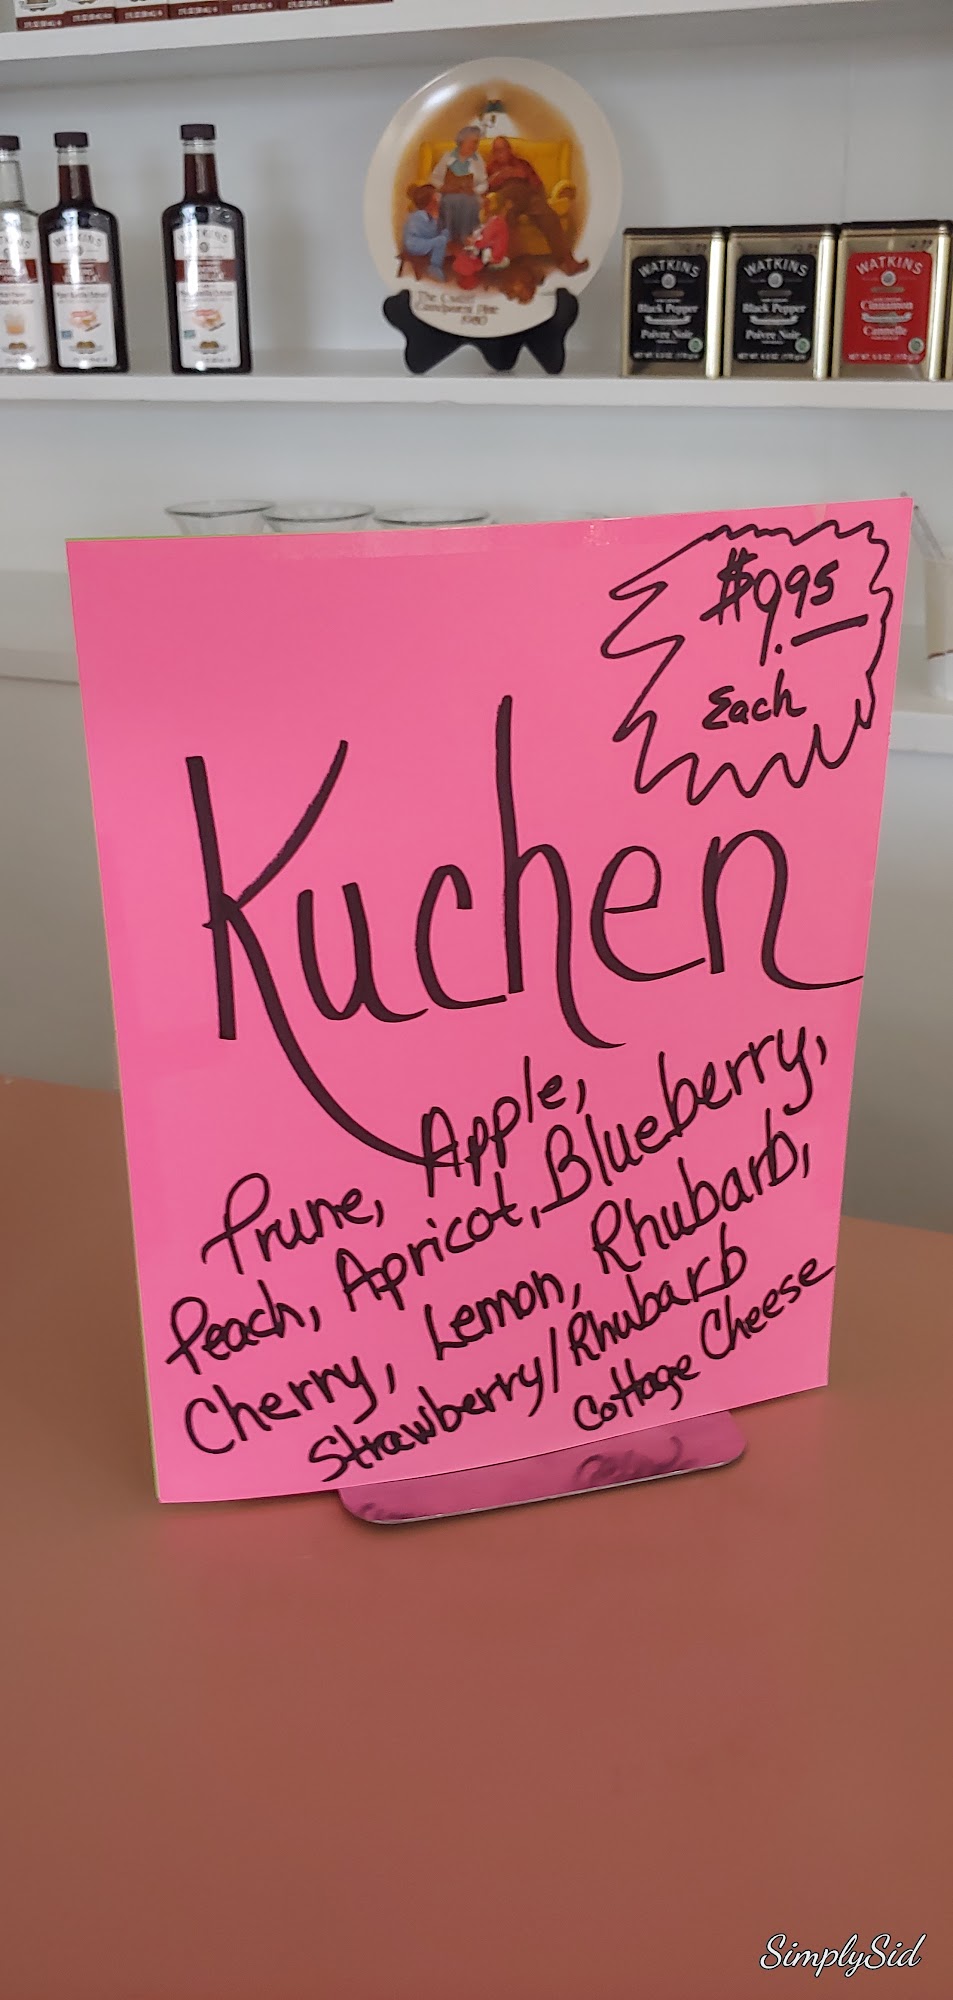 WATKINS
WATKINS
The Cozy
Grandparent Plate
1980
WATKINS
Black Pepper
Poivre Noir
WATKINS
Black Pepper
Poivre Noir
WATKINS
Cinnamon
Cannelle
$9.95
Each
Kuchen
Prune, Apple,
Peach, Apricot, Blueberry,
Cherry, Lemon, Rhubarb,
Strawberry/Rhubarb
Cottage Cheese
SimplySid